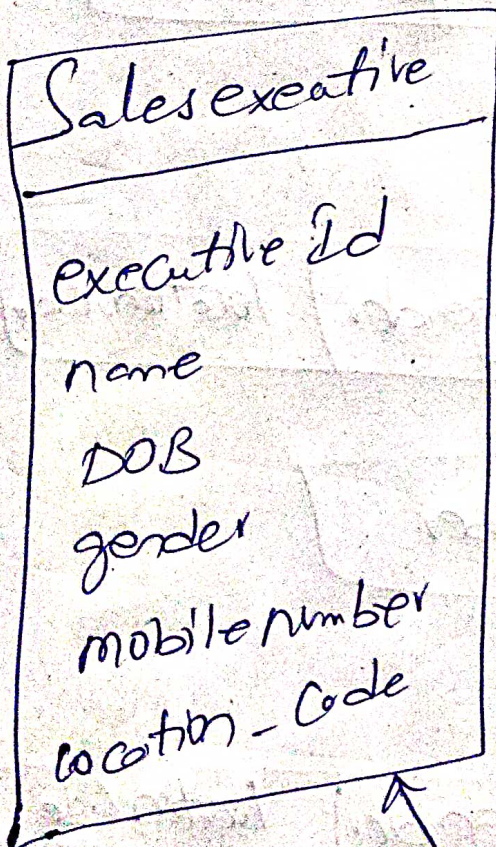 Sales exeative
executive Id
name
DOB
gender
mobile number
location - Code